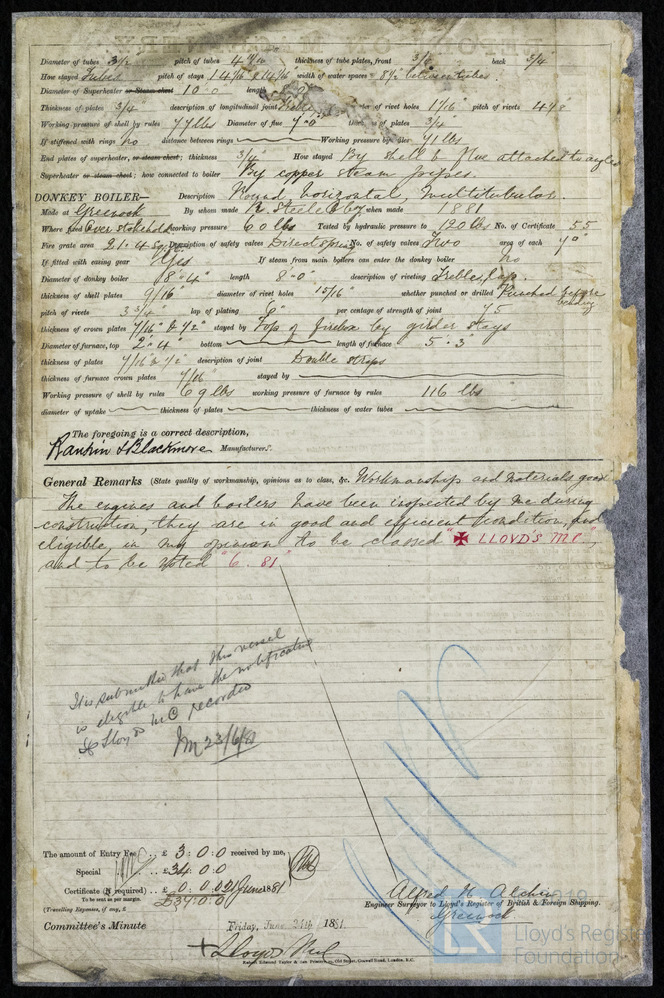 Diameter of tubes 3½ pitch of tubes 4 7/16 thickness of tube plates, front 3/4 back 3/4
How stayed Tubes pitch of stays 14 7/16 x 14 7/16 width of water spaces 8½ between tubes
Diameter of Superheater or Steam chest 10-0 length
Thickness of plates 3/4 description of longitudinal joint of rivet holes 1 1/16 pitch of rivets
Working pressure of shell by rules 77 lbs Diameter of flue of plates 3/4
If stiffened with rings No distance between rings Working pressure by rules 71 lbs
End plates of superheater, or steam chest; thickness 3/4 How stayed By shell & flue attached to angles
Superheater or steam chest; how connected to boiler By copper steam pipes.
DONKEY BOILER— Description Round horizontal, Multitubular.
Made at Greenock By whom made R. Steele & Coy when made 1881
Where fixed Over stokehold working pressure 60 lbs Tested by hydraulic pressure to 120 lbs No. of Certificate 55
Fire grate area 21.4 Sq. ft. Description of safety valves Direct spring No. of safety valves Two area of each 7.0"
If fitted with easing gear Yes If steam from main boilers can enter the donkey boiler No
Diameter of donkey boiler 8'-4" length 8'-0" description of riveting Treble, Lap.
thickness of shell plates 9/16" diameter of rivet holes 15/16" whether punched or drilled Punched before bending
pitch of rivets 3 3/4" lap of plating 8" per centage of strength of joint 75
thickness of crown plates 7/16" & 1/2" stayed by Top of firebox by girder stays
Diameter of furnace, top 2'-4" bottom length of furnace 5'-3"
thickness of plates 7/16 & 1/2" description of joint Double straps
thickness of furnace crown plates 7/16 stayed by
Working pressure of shell by rules 69 lbs working pressure of furnace by rules 116 lbs
diameter of uptake thickness of plates thickness of water tubes
The foregoing is a correct description,
Rankin & Blackmore Manufacturers.
General Remarks (State quality of workmanship, opinions as to class, &c. Workmanship and Materials good
The engines and boilers have been inspected by me during
construction, they are in good and efficient condition, and
eligible, in my opinion to be classed "✠ LLOYD'S MC",
and to be noted "6. 81"
It is submitted that this vessel
is eligible to have the notification
✠ Lloyds MC recorded
JM 23/6/81
The amount of Entry Fee .. £ 3 : 0 : 0 received by me,
Special .. £ 34 : 0 : 0
Certificate (if required) .. £ 0 : 0 : 0 21 June 1881
To be sent as per margin. £37:0:0
(Travelling Expenses, if any, £
Alfred H. Alchin
Engineer Surveyor to Lloyd's Register of British & Foreign Shipping.
Greenock
Committee's Minute Friday, June 24th 1881.
+ Lloyds MC
Lloyd's Register
Foundation